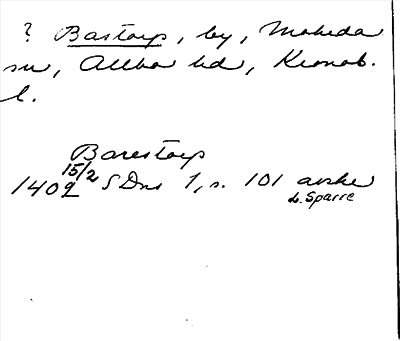 ? Bastorp, by, Moheda
sn, Allbo hd, Kronob.
l.
Barestorp
15/2
1409 SDns 1, s. 101 avskr
L. Sparre